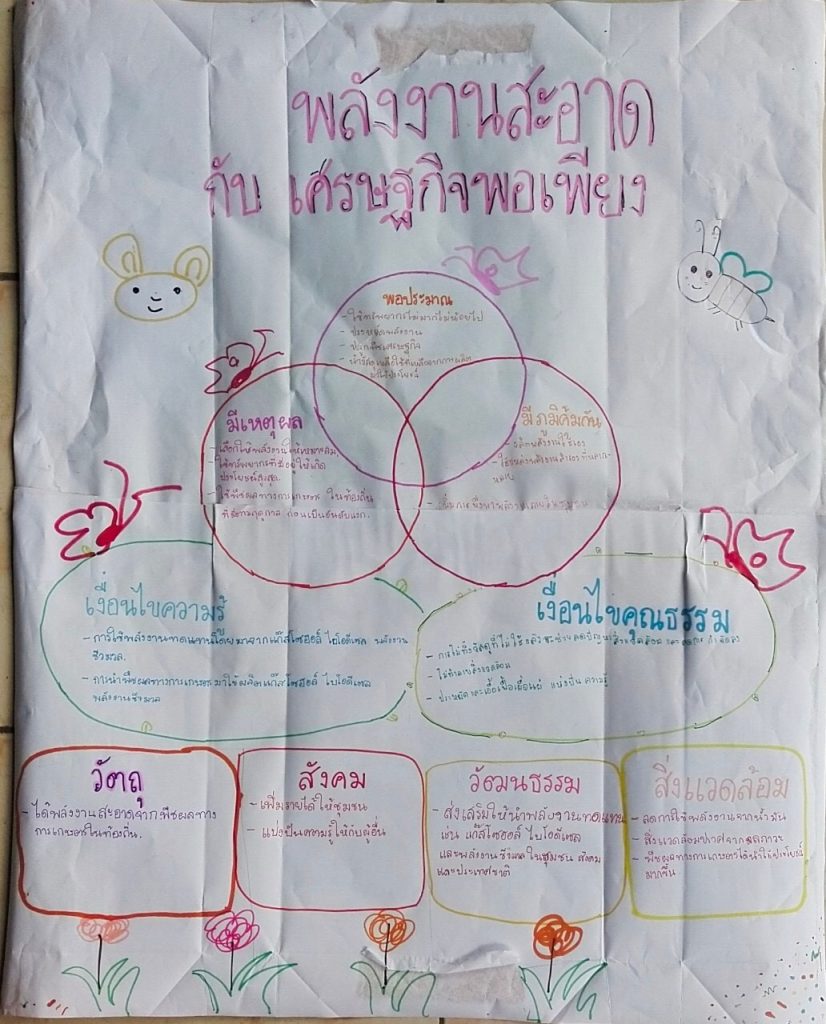 พลังงานสะอาด
กับ เศรษฐกิจพอเพียง
พอประมาณ
- ใช้ทรัพยากรไม่มากไม่น้อยไป
- ประหยัดพลังงาน
- ปลูกพืชเศรษฐกิจ
มีเหตุผล
- เลือกใช้พลังงานให้เหมาะสม
- ใช้ทรัพยากรที่มีอยู่ให้เกิด
ประโยชน์สูงสุด
- ใช้พืชผลทางการเกษตร ในท้องถิ่น
ที่มีตามฤดูกาล ก่อนเป็นอันดับแรก.
มีภูมิคุ้มกัน
เงื่อนไขความรู้
- การใช้พลังงานทดแทนโดยมาจากแก๊สโซฮอล์ ไบโอดีเซล พลังงาน
ชีวมวล.
- การนำพืชผลทางการเกษตรมาใช้ผลิตแก๊สโซฮอล์ ไบโอดีเซล
พลังงานชีวมวล
เงื่อนไขคุณธรรม
- ไม่ทำลายสิ่งแวดล้อม
- ประหยัดและเอื้อเฟื้อเผื่อแผ่ แบ่งปัน ความรู้
วัตถุ
- ได้พลังงานสะอาดจากพืชผลทาง
การเกษตรในท้องถิ่น.
สังคม
- เพิ่มรายได้ให้ชุมชน
- แบ่งปันความรู้ให้กับผู้อื่น
วัฒนธรรม
- ส่งเสริมให้นำพลังงานทดแทน
เช่น แก๊สโซฮอล์ ไบโอดีเซล
และพลังงานชีวมวล ในชุมชน สังคม
และประเทศชาติ
สิ่งแวดล้อม
- ลดการใช้พลังงานจากน้ำมัน
- สิ่งแวดล้อมปราศจากมลภาวะ
- พืชผลทางการเกษตรได้นำใช้ประโยชน์
มากขึ้น